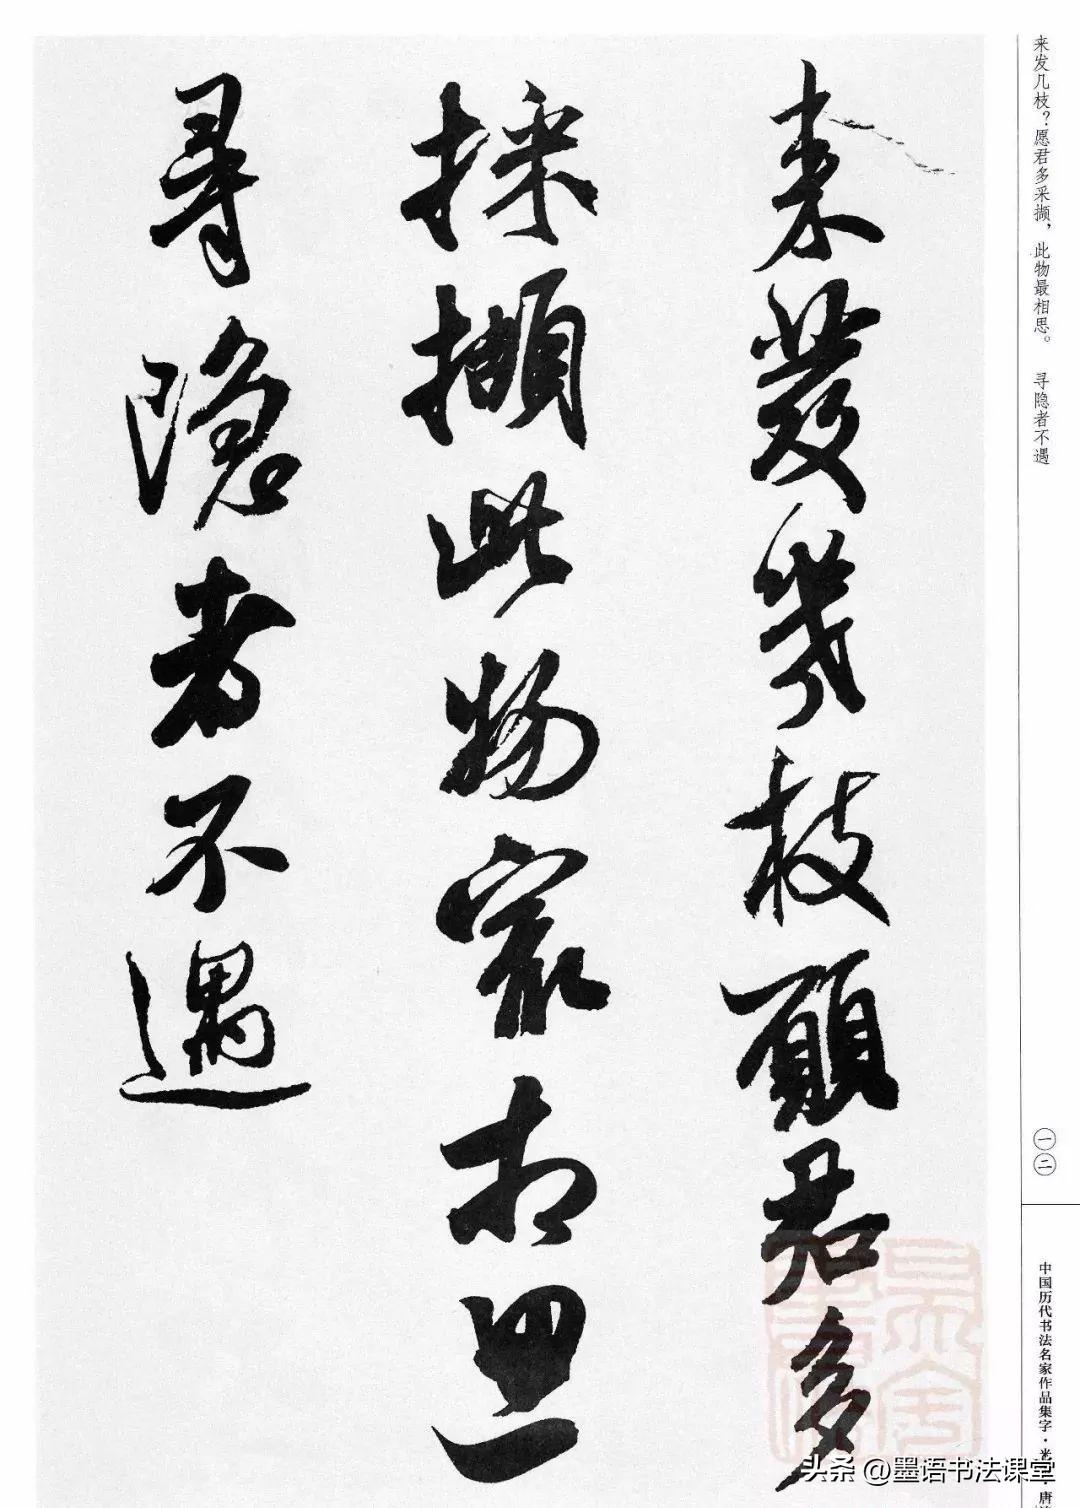 来发几枝？愿君多采撷，此物最相思。 寻隐者不遇
一二
中国历代书法名家作品集字·米
来發幾枝願君多
採擷此物最相思
尋隱者不遇
头条 @墨语书法课堂